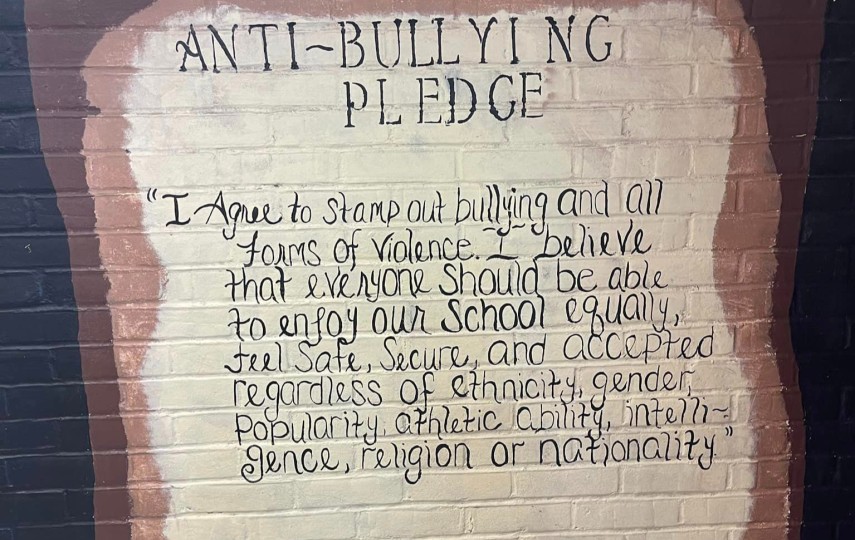 ANTI~BULLYING
PLEDGE
"I Agree to stamp out bullying and all
forms of violence. I believe
that everyone should be able
to enjoy our School equally,
feel Safe, Secure, and accepted
regardless of ethnicity, gender,
Popularity, athletic ability, intelli~
gence, religion or nationality."